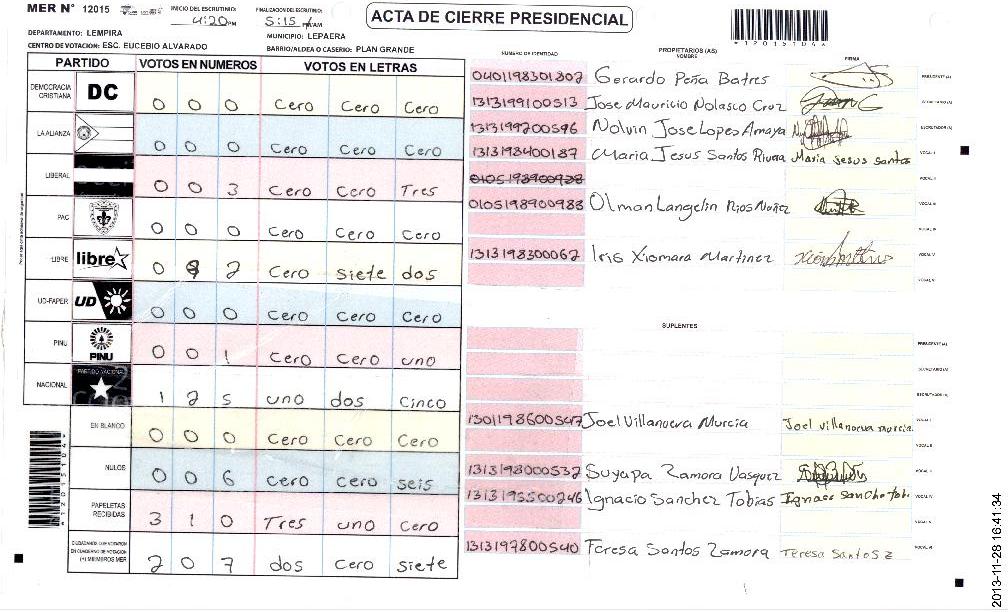 MER N° 12015
INICIO DEL ESCRUTINIO: 4:20 PM
FINALIZACION DEL ESCRUTINIO: 5:15
ACTA DE CIERRE PRESIDENCIAL
*12015104*
DEPARTAMENTO: LEMPIRA
MUNICIPIO: LEPAERA
CENTRO DE VOTACION: ESC. EUCEBIO ALVARADO
BARRIO/ALDEA O CASERIO: PLAN GRANDE
PARTIDO VOTOS EN NUMEROS VOTOS EN LETRAS
DEMOCRACIA CRISTIANA DC 0 0 0 Cero Cero Cero
LA ALIANZA 0 0 0 Cero Cero Cero
LIBERAL 0 0 3 Cero Cero Tres
PAC 0 0 0 Cero Cero Cero
LIBRE libre 0 2 Cero siete dos
UD-FAPER UD 0 0 0 Cero Cero Cero
PINU PINU 0 0 1 Cero Cero uno
NACIONAL PARTIDO NACIONAL 1 2 5 uno dos Cinco
EN BLANCO 0 0 0 Cero Cero Cero
NULOS 0 0 6 Cero Cero seis
PAPELETAS RECIBIDAS 3 1 0 Tres uno Cero
CIUDADANOS QUE VOTARON EN CUADERNO DE VOTACION (+) MIEMBROS MER 2 0 7 dos Cero siete
NUMERO DE IDENTIDAD
PROPIETARIOS (AS)
NOMBRE
FIRMA
0401198301807 Gerardo Peña Batres PRESIDENTE (A)
1313199100513 Jose Mauricio Nolasco Cruz SECRETARIO (A)
1313199200596 Nolvin Jose Lopes Amaya ESCRUTADOR (A)
1313198400187 Maria Jesus Santos Rivera Maria Jesus santos VOCAL I
VOCAL II
0105198900983 Olman Langelin Rios Nuñez VOCAL III
VOCAL IV
1313198300062 Iris Xiomara Martinez VOCAL V
VOCAL VI
SUPLENTES
PRESIDENTE (A)
SECRETARIO (A)
ESCRUTADOR (A)
1301198600547 Joel Villanueva Murcia Joel villanueva murcia VOCAL I
VOCAL II
1313198000532 Suyapa Zamora Vasquez VOCAL III
1313195500246 Ignacio Sanchez Tobias VOCAL IV
VOCAL V
1313197800540 Teresa Santos Zamora Teresa Santos Z VOCAL VI
*12015104*
2013-11-28 16:41:34